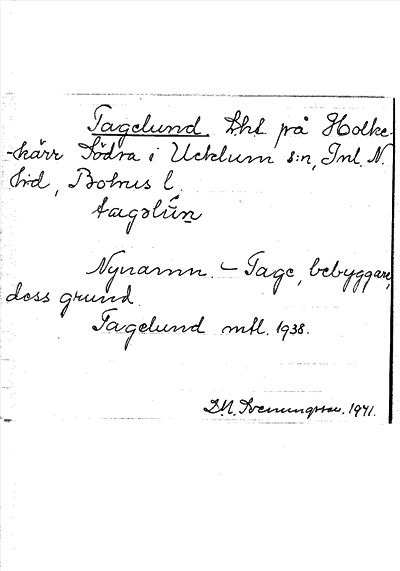 Tagelund. Lht på Holke-
-kärr Södra i Ucklum s:n, Inl. N.
hd, Bohus l.
tagəlún
Nynamn. – Tage, bebyggare,
dess grund.
Tagelund mtl. 1938.
D.N. Svenungsson. 1971.